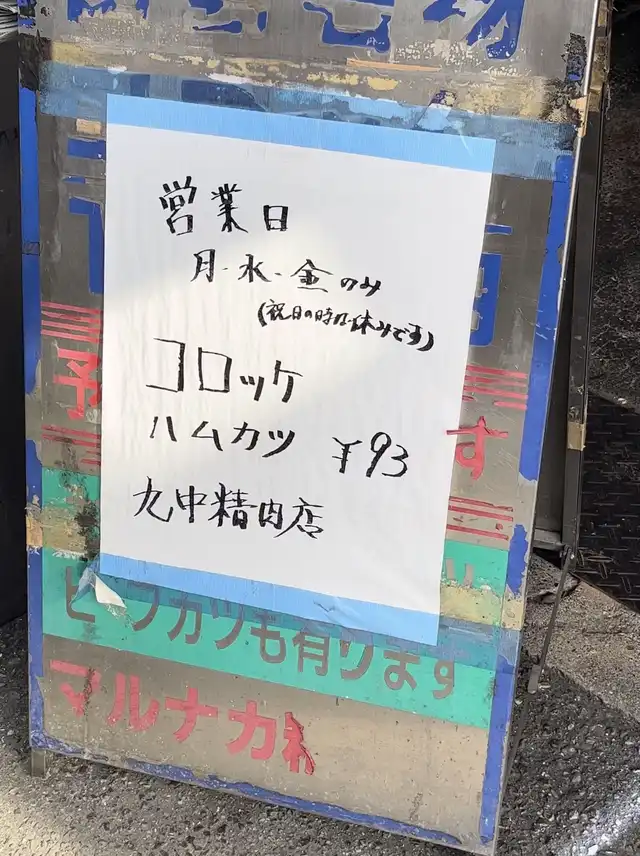 営業日
月・水・金のみ
(祝日の時は休みです)
コロッケ
ハムカツ ¥93
丸中精肉店
予
す
ビーフカツも有ります
マルナカ精